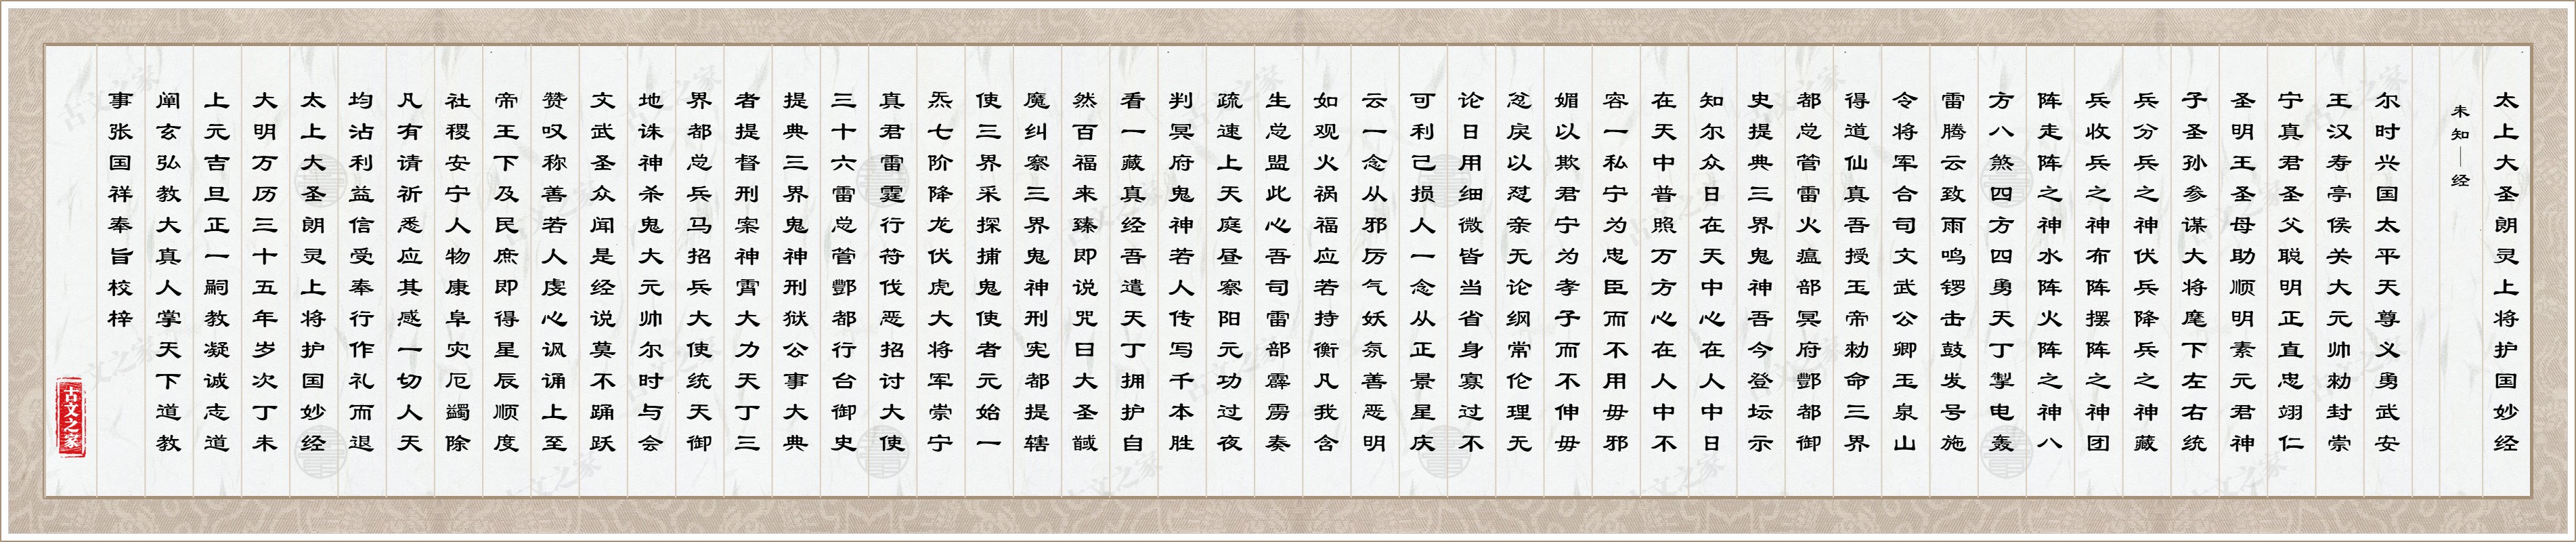 太上大圣朗灵上将护国妙经
未知—经
尔时兴国太平天尊义勇武安
王汉寿亭侯关大元帅勅封崇
宁真君圣父聪明正直忠翊仁
圣明王圣母助顺明素元君神
子圣孙参谋大将麾下左右统
兵分兵之神伏兵降兵之神藏
兵收兵之神布阵摆阵之神团
阵走阵之神水阵火阵之神八
方八煞四方四勇天丁掣电轰
雷腾云致雨鸣锣击鼓发号施
令将军合司文武公卿玉泉山
得道仙真吾授玉帝勅命三界
都总管雷火瘟部冥府酆都御
史提典三界鬼神吾今登坛示
知尔众日在天中心在人中日
在天中普照万方心在人中不
容一私宁为忠臣而不用毋邪
媚以欺君宁为孝子而不伸毋
忿戾以怼亲无论纲常伦理无
论日用细微皆当省身寡过不
可利己损人一念从正景星庆
云一念从邪厉气妖氛善恶明
如观火祸福应若持衡凡我含
生总盟此心吾司雷部霹雳奏
疏速上天庭昼察阳元功过夜
判冥府鬼神若人传写千本胜
看一藏真经吾遣天丁拥护自
然百福来臻即说咒曰大圣馘
魔纠察三界鬼神刑宪都提辖
使三界采探捕鬼使者元始一
炁七阶降龙伏虎大将军崇宁
真君雷霆行符伐恶招讨大使
三十六雷总管酆都行台御史
提典三界鬼神刑狱公事大典
者提督刑案神霄大力天丁三
界都总兵马招兵大使统天御
地诛神杀鬼大元帅尔时与会
文武圣众闻是经说莫不踊跃
赞叹称善若人虔心讽诵上至
帝王下及民庶即得星辰顺度
社稷安宁人物康阜灾厄蠲除
凡有请祈悉应其感一切人天
均沾利益信受奉行作礼而退
太上大圣朗灵上将护国妙经
大明万历三十五年岁次丁未
上元吉旦正一嗣教凝诚志道
阐玄弘教大真人掌天下道教
事张国祥奉旨校梓
古文之家